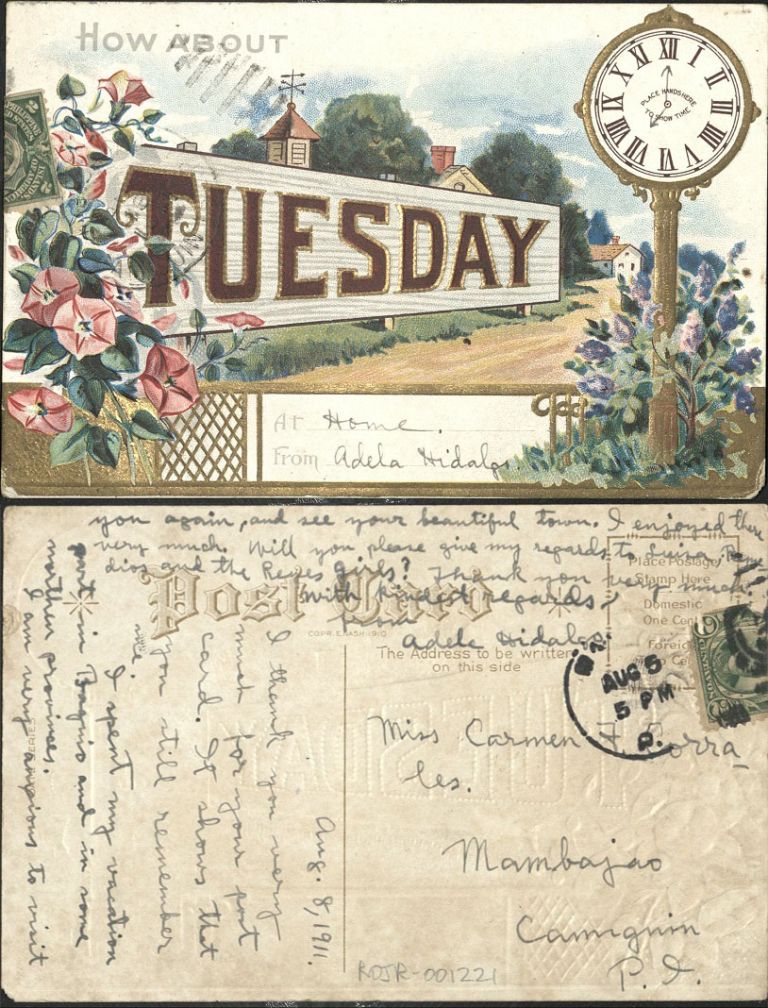 HOW ABOUT
TUESDAY
XII
I
II
III
IIII
V
VI
VII
VIII
IX
X
XI
PLACE HANDS HERE
TO SHOW TIME
At Home.
From Adela Hidalgo.
Post Card
COPR. E. NASH 1910
The Address to be written
on this side
Place Postage
Stamp Here
Domestic
One Cent
Foreign
AUG 5
5 PM
P.
Aug. 8, 1911.
I thank you very
much for your post
card. It shows that
you still remember
me.
I spent my vacation
part in Baguio and in some
northern provinces.
I am very anxious to visit
you again, and see your beautiful town. I enjoyed there
very much. Will you please give my regards to Luisa, Reme
dios and the Reyes girls? Thank you very much.
With kindest regards,
from
Adela Hidalgo.
Miss Carmen F. Borra_
les.
Mambajao
Camiguin
P. I.
RDJR-001221